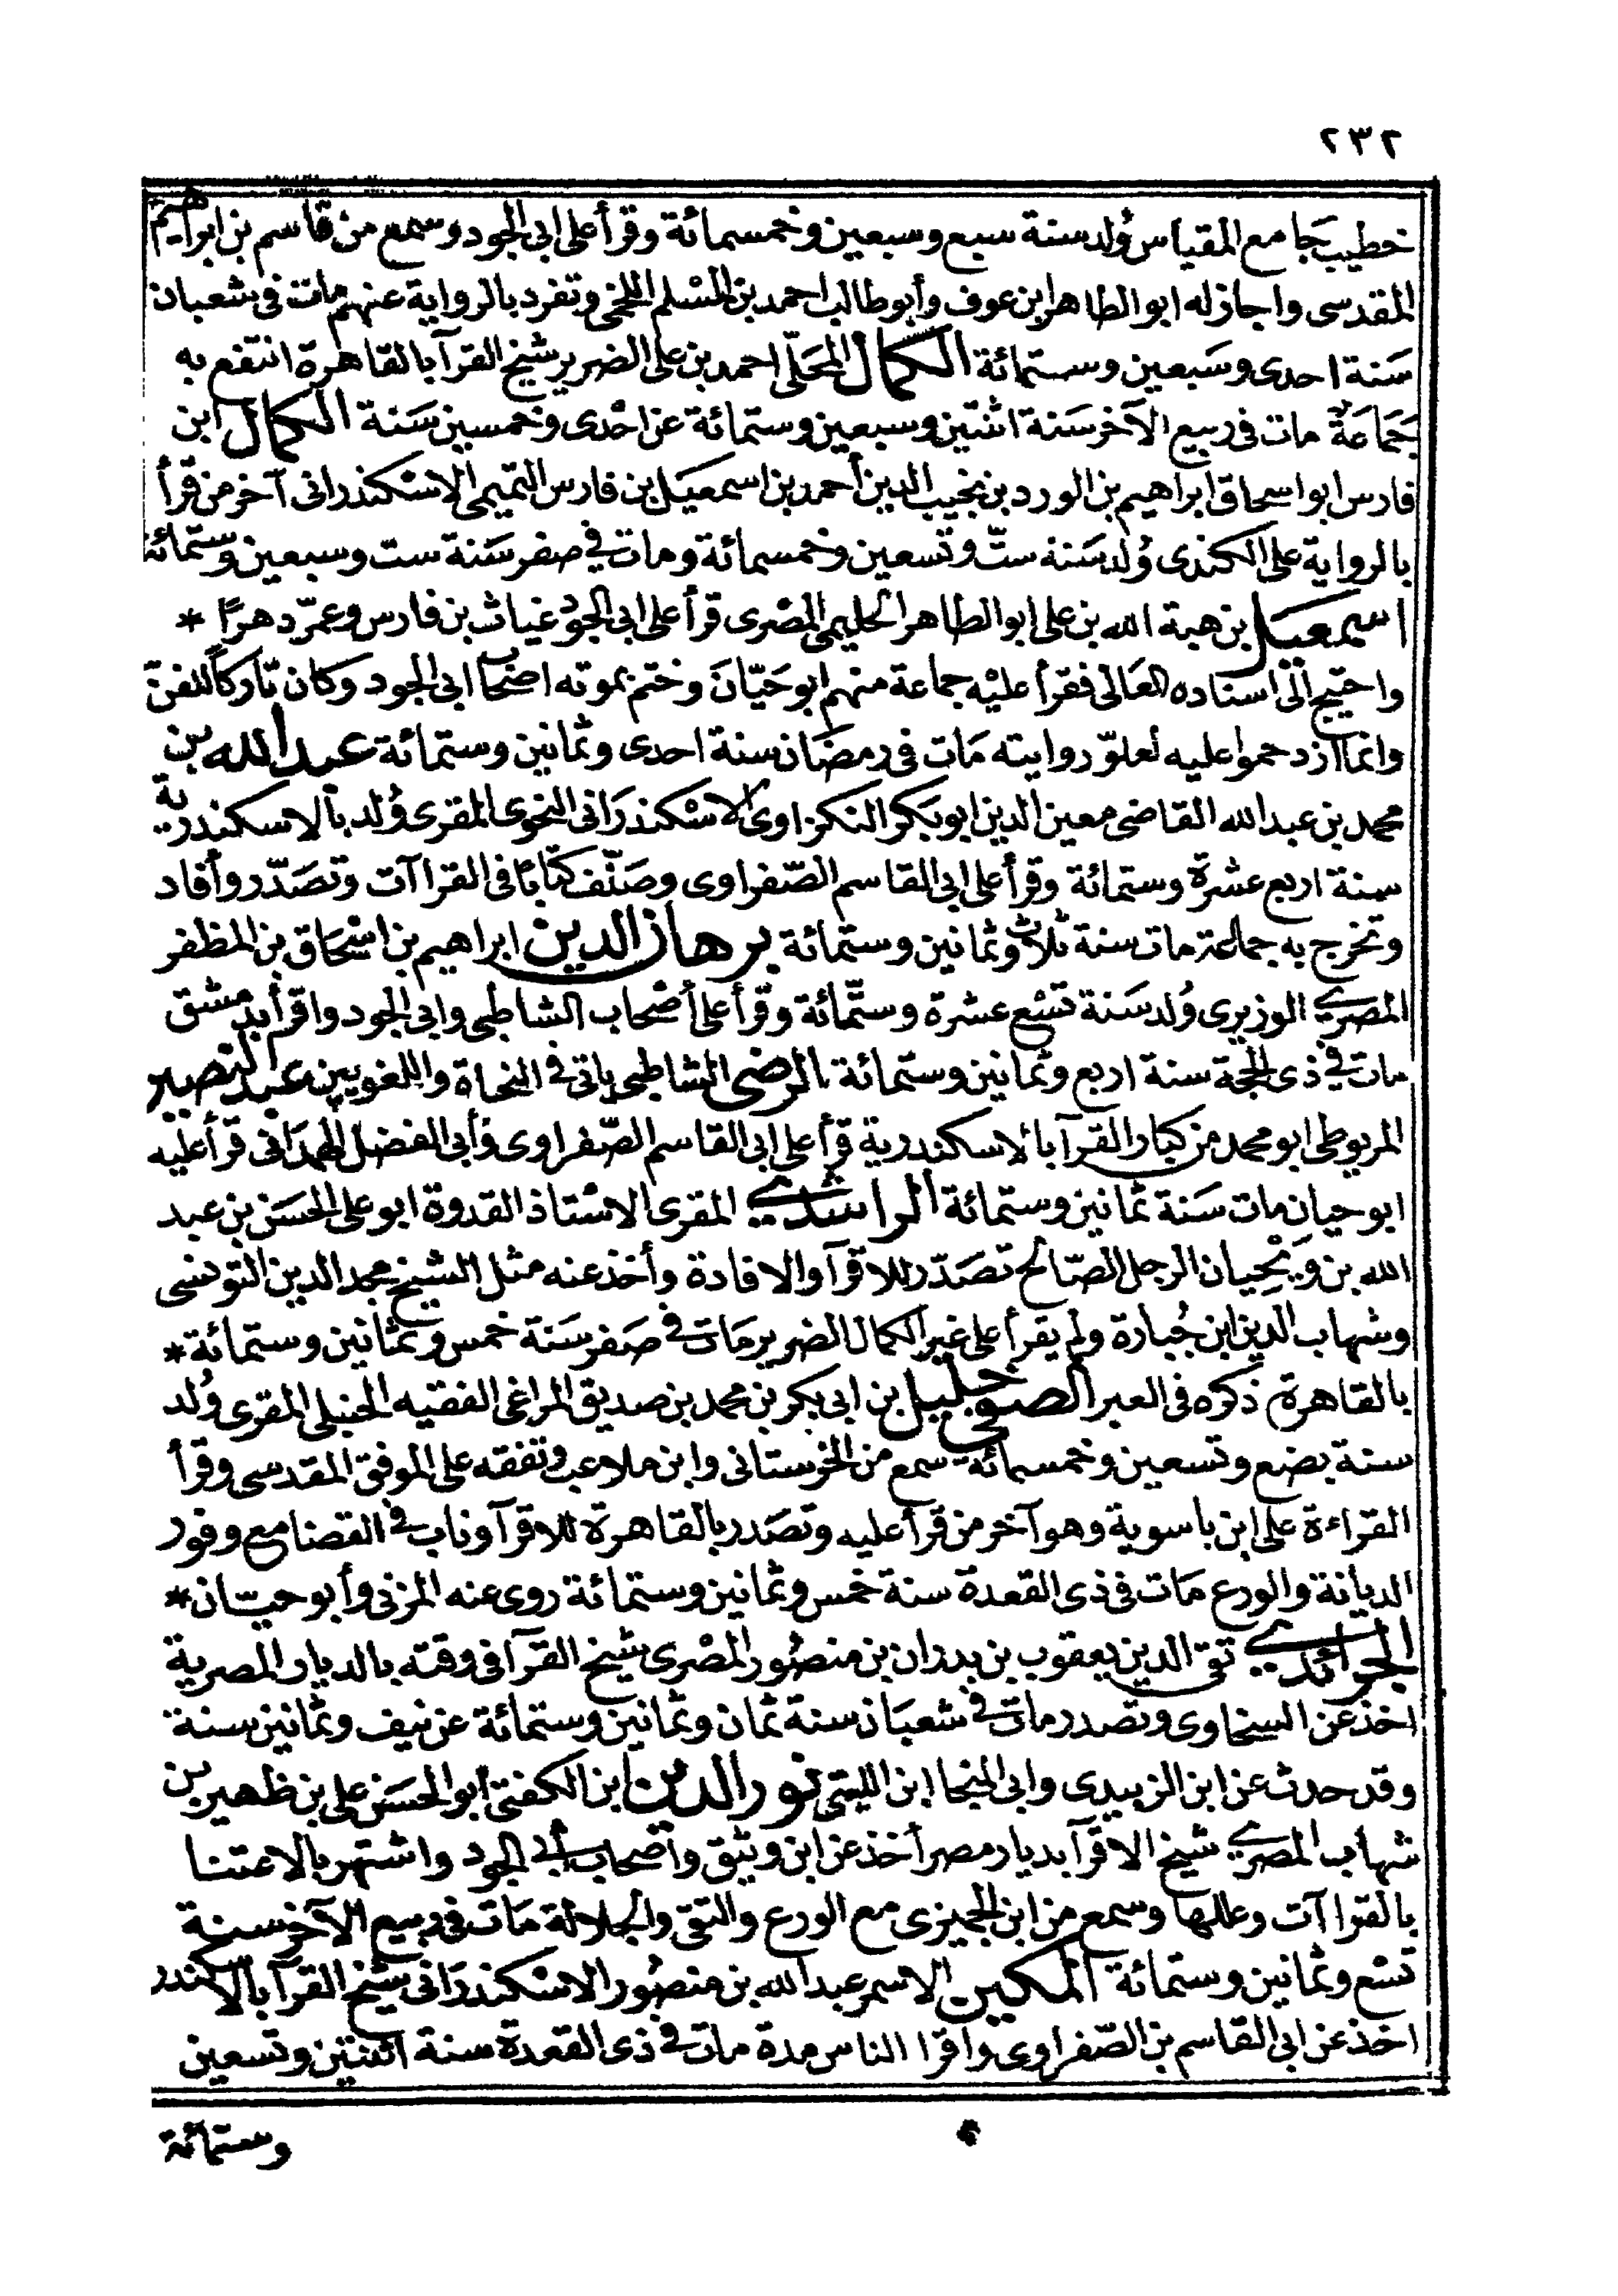 ٢٣٢
خطيب جامع المقياس وُلد سنة سبع وسبعين وخمسمائة وقرأ على ابى الجود وسمع من قاسم بن ابراهيم
المقدسى واجاز له ابو الطاهر ابن عوف وأبو طالب احمد بن المسْلم اللخمى وتفرد بالرواية عنهم مات فى شعبان
سَنة احدى وسَبعين وستمائة الكمال المحَلّى احمد بن على الضرير شيخ القرآ بالقاهرة انتفع به
جَمَاعَةٌ مات فى ربيع الآخر سَنة اثنتين وسبعين وستمائة عن احْدى وخمسين سَنة الكمال ابن
فارس ابو اسحاق ابراهيم بن الورد بن نجيب الدين أحمد بن اسمعيَل بن فارس التميمى الاسْكندرانى آخر من قرأ
بالرواية على الكندى وُلد سَنة ستّ وتسعين وخمسمائة ومات فى صفر سَنة ست وسبعين وستّمائة
اسمعيل بن هبة الله بن على ابو الطاهر الحليمى المصْرى قرأ على ابى الجود غياث بن فارس وعمّر دهرًا *
واحتيج الى اسناده العَالى فقرأ عليْه جماعة منهم ابو حَيّانَ وختم بموته اصْحاب ابى الجود وكان تاركاً للفنّ
وانما ازدحموا عليه لعلوّ روايته مَات فى رمضَان سنة احدى وثمانين وستمائة عبد الله بن
محمد بن عبد الله القاضى معين الدين ابو بَكر النكزاوى الاسْكندرَانى النحوى المقرى وُلد بالاسكندرية
سنة اربع عشرة وستمائة وقرأ على ابى القاسم الصّفراوى وصَنّف كتابًا فى القراآت وتصَدّر وأفاد
وتخرج به جماعة مات سنة ثلاث وثمانين وستمائة برهان الدين ابراهيم بن اسْحَاق بن المظفر
المصرى الوزيرى وُلد سَنة تسْع عشرة وستّمائة وقرأ على أصْحاب الشاطبى وابى الجود واقرأ بدمشق
مات فى ذى الحجة سنة اربع وثمانين وستمائة الرضى الشاطبى ياتى فى النحاة واللغويين عبد النصير
المريوطى ابو محمد من كبار القرآ بالاسكندرية قرأ على ابى القاسم الصّفراوى وأبى الفضل الهمدَانى قرأ عليه
ابو حيان مات سَنة ثمانين وستمائة الراشدى المقرى الاسْتاذ القدوة ابو على الحسَن بن عبد
الله بن ويْحيان الرجل الصّالح تصَدّر للاقرآ والافادة وأخذ عنه مثل الشيخ مجد الدين التونسى
وشهاب الدين ابن جُبارة ولم يقرأ على غير الكمال الضرير مَات فى صَفر سَنة خمس وثمانين وستمائة *
بالقاهرة ذكره فى العبر الصفى خليل بن ابى بكر بن محمد بن صديق المراغى الفقيه الحنبلى المقرى وُلد
سنة بضع وتسعين وخمسمائة سمع من الخرستانى وابن ملاعب وتفقه على الموفق المقدسى وقرأ
القراءة على ابن باسوية وهو آخر من قرأ عليه وتصَدر بالقاهرة للاقرآ وناب فى القضا مع وفور
الديانة والورع مَات فى ذى القعدة سنة خمس وثمانين وستمائة روى عنه المزنى وأبو حيّان *
الجرائدى تقى الدين يعقوب بن بدران بن منصُور المصْرى شيخ القرآ فى وقته بالديار المصرية
اخذ عن السخاوى وتصدر مات فى شعبَان سنة ثمان وثمانين وستمائة عن نيف وثمانين سنة
وقد حدث عن ابن الزبيدى وابى المنجا ابن الليتى نور الدين ابن الكفتى أبو الحسَن على بن ظهير بن
شهاب المصرى شيخ الاقرآ بديار مصر أخذ عن ابن وثيق وأصْحاب أبى الجود واشتهر بالاعتنا
بالقراآت وعللها وسمع من ابن الجميزى مع الورع والتقى والجلالة مَات فى ربيع الآخر سنة
تسْع وثمانين وستمائة المكين الاسمر عبد الله بن منصُور الاسْكندرَانى شيخ القرآ بالاسكندر
اخذ عن ابى القاسم بن الصّفراوى واقرا الناس مدة مات فى ذى القعدة سنة اثنتين وتسعين
وستمائة